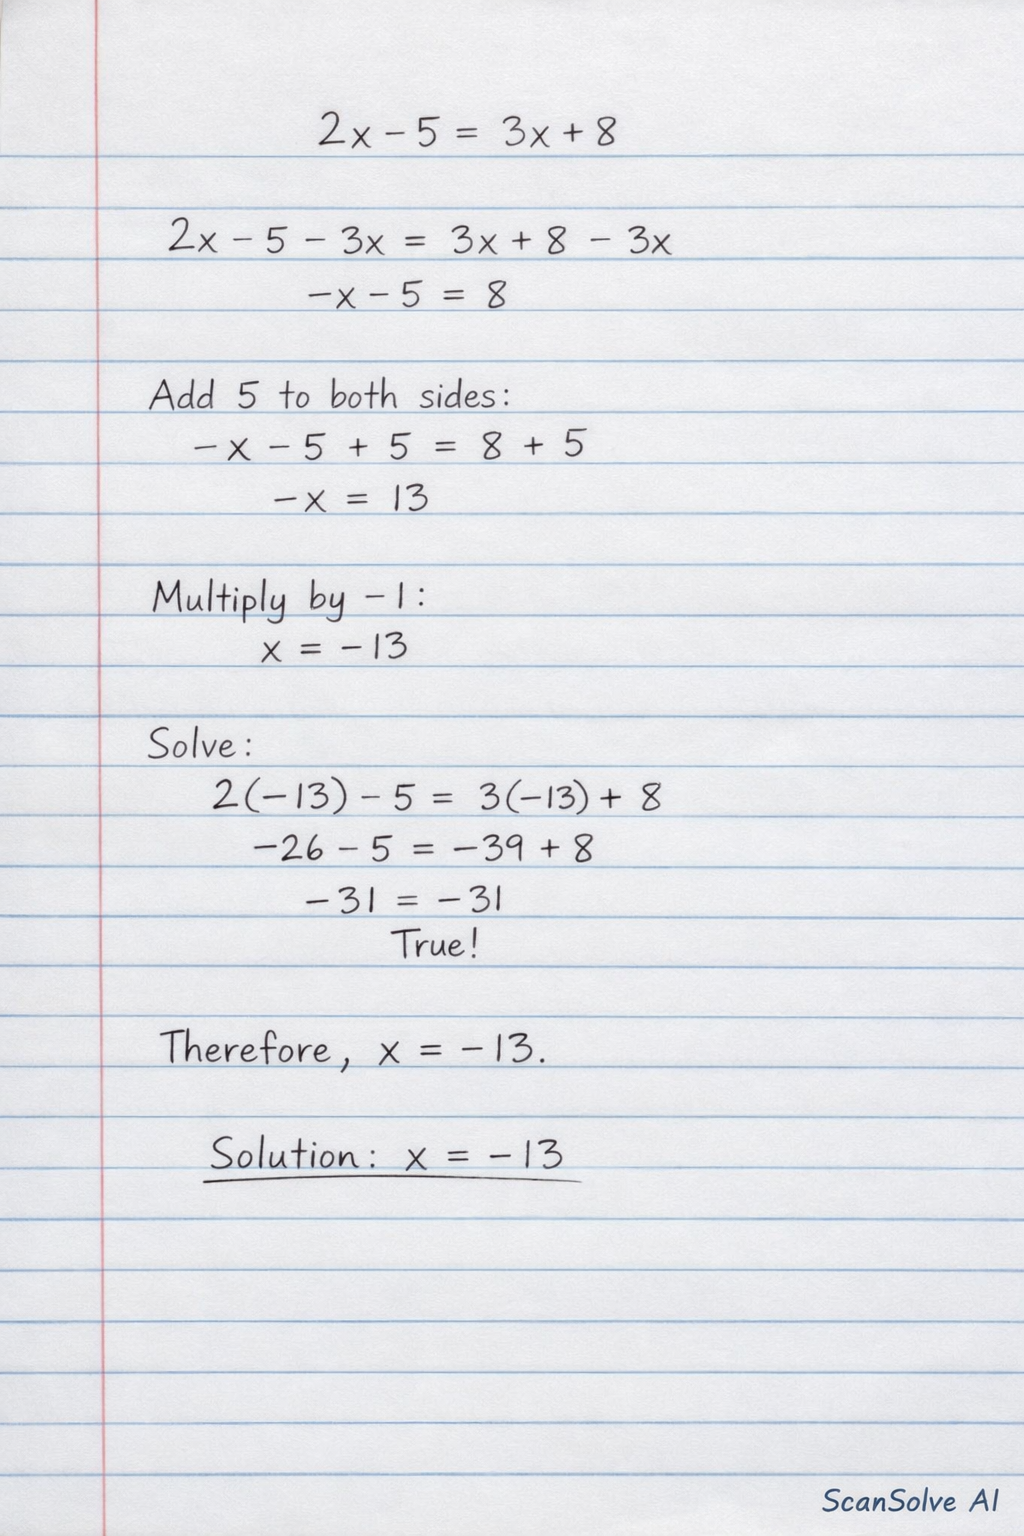 2x - 5 = 3x + 8
2x - 5 - 3x = 3x + 8 - 3x
-x - 5 = 8
Add 5 to both sides:
-x - 5 + 5 = 8 + 5
-x = 13
Multiply by -1:
x = -13
Solve:
2(-13) - 5 = 3(-13) + 8
-26 - 5 = -39 + 8
-31 = -31
True!
Therefore, x = -13.
Solution: x = -13
ScanSolve AI